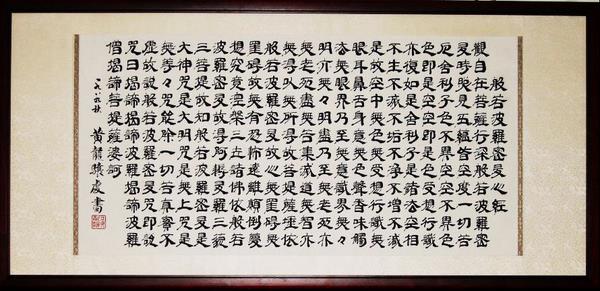 般若波羅蜜多心經
觀自在菩薩行深般若波羅蜜
多時照見五蘊皆空度一切苦
厄舍利子色不異空空不異色
色即是空空即是色受想行識
亦復如是舍利子是諸法空相
不生不滅不垢不淨不增不減
是故空中無色無受想行識無
眼耳鼻舌身意無色聲香味觸
法無眼界乃至無意識界無々
明亦無々明盡乃至無老死亦
無老死盡無苦集滅道無智亦
無得以無所得故菩提薩埵依
般若波羅蜜多故心無罣礙無
罣礙故無有恐怖遠離顛倒夢
想究竟涅槃三世諸佛依般若
波羅蜜多故得阿耨多羅三藐
三菩提故知般若波羅蜜多是
大神咒是大明咒是無上咒是
無等々咒能除一切苦真實不
虛故說般若波羅蜜多咒即說
咒曰揭諦揭諦波羅揭諦波羅
僧揭諦菩提薩婆訶
黃龍書